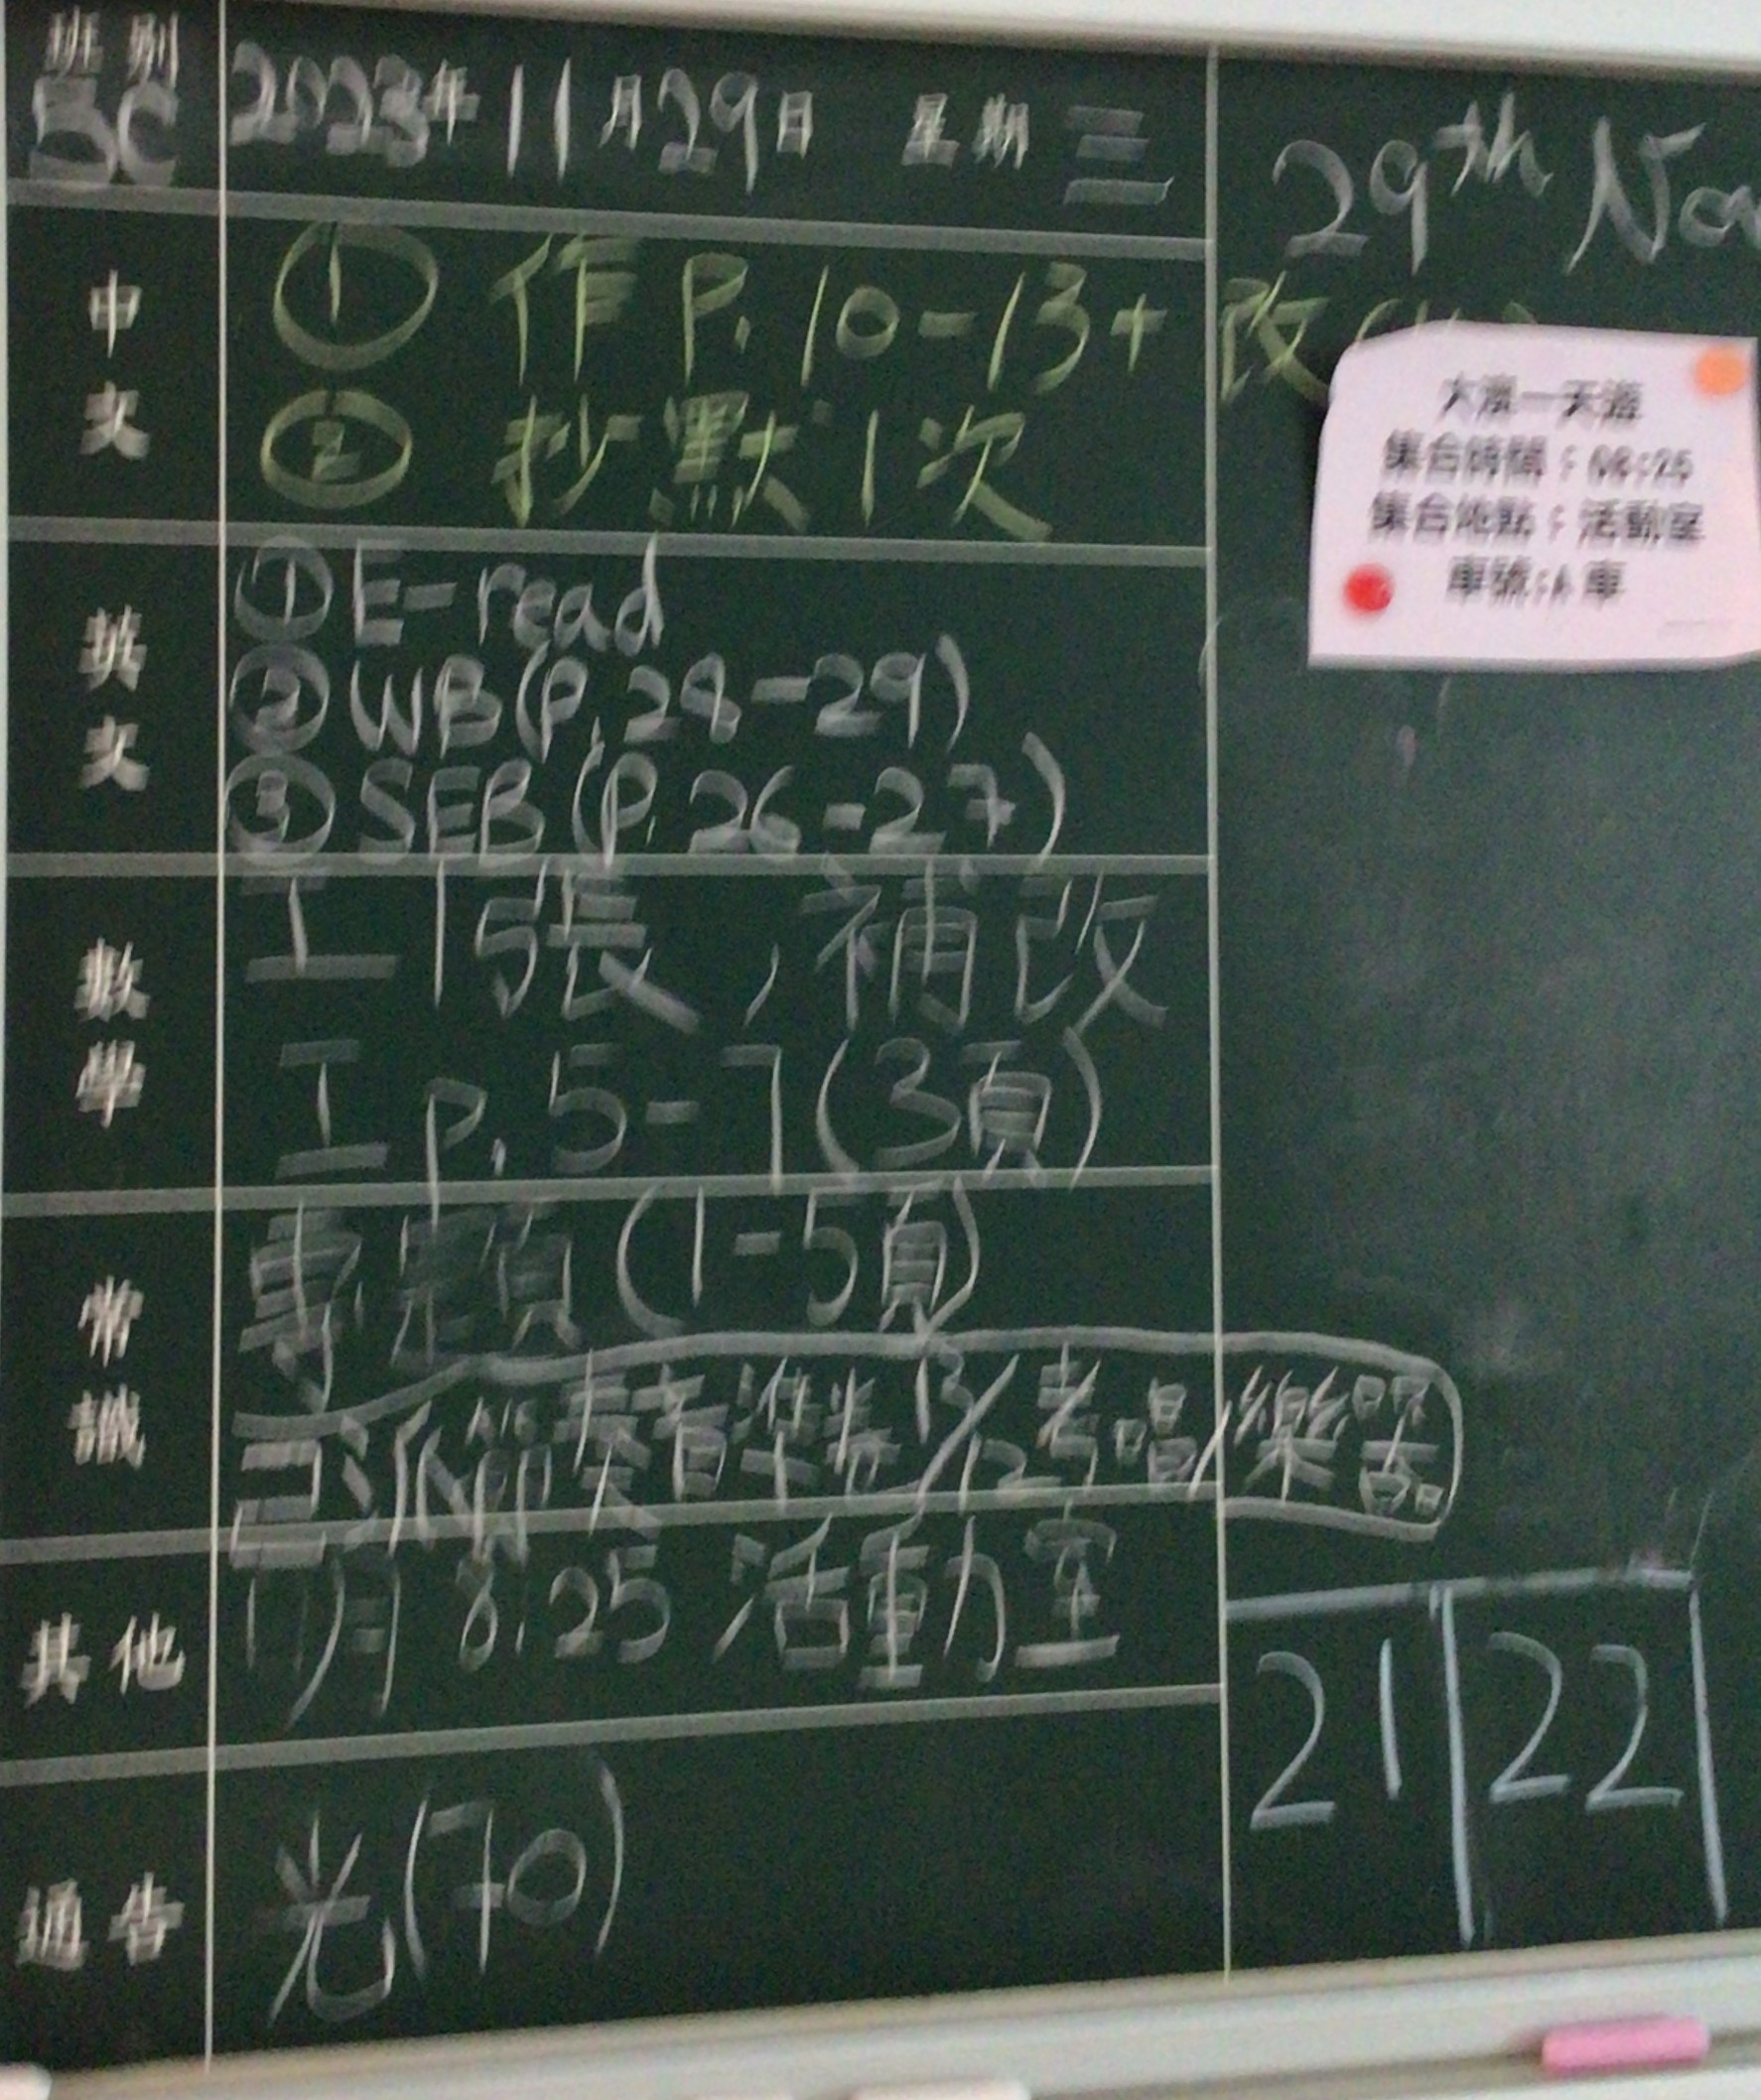 班別 5C 2023年11月29日 星期三
29th Nov
中文
① 作 P.10-13+改
② 抄默1次
英文
① E-read
② WB (P.28-29)
③ SEB (P.26-27)
數學
工1張，補改
工 P.5-7(3頁)
常識
專題(1-5頁)
13/12考唱/樂器
其他
明 8:25 活動室
通告
光(70)
大澳一天遊
集合時間：08:25
集合地點：活動室
車號:A 車
21 22